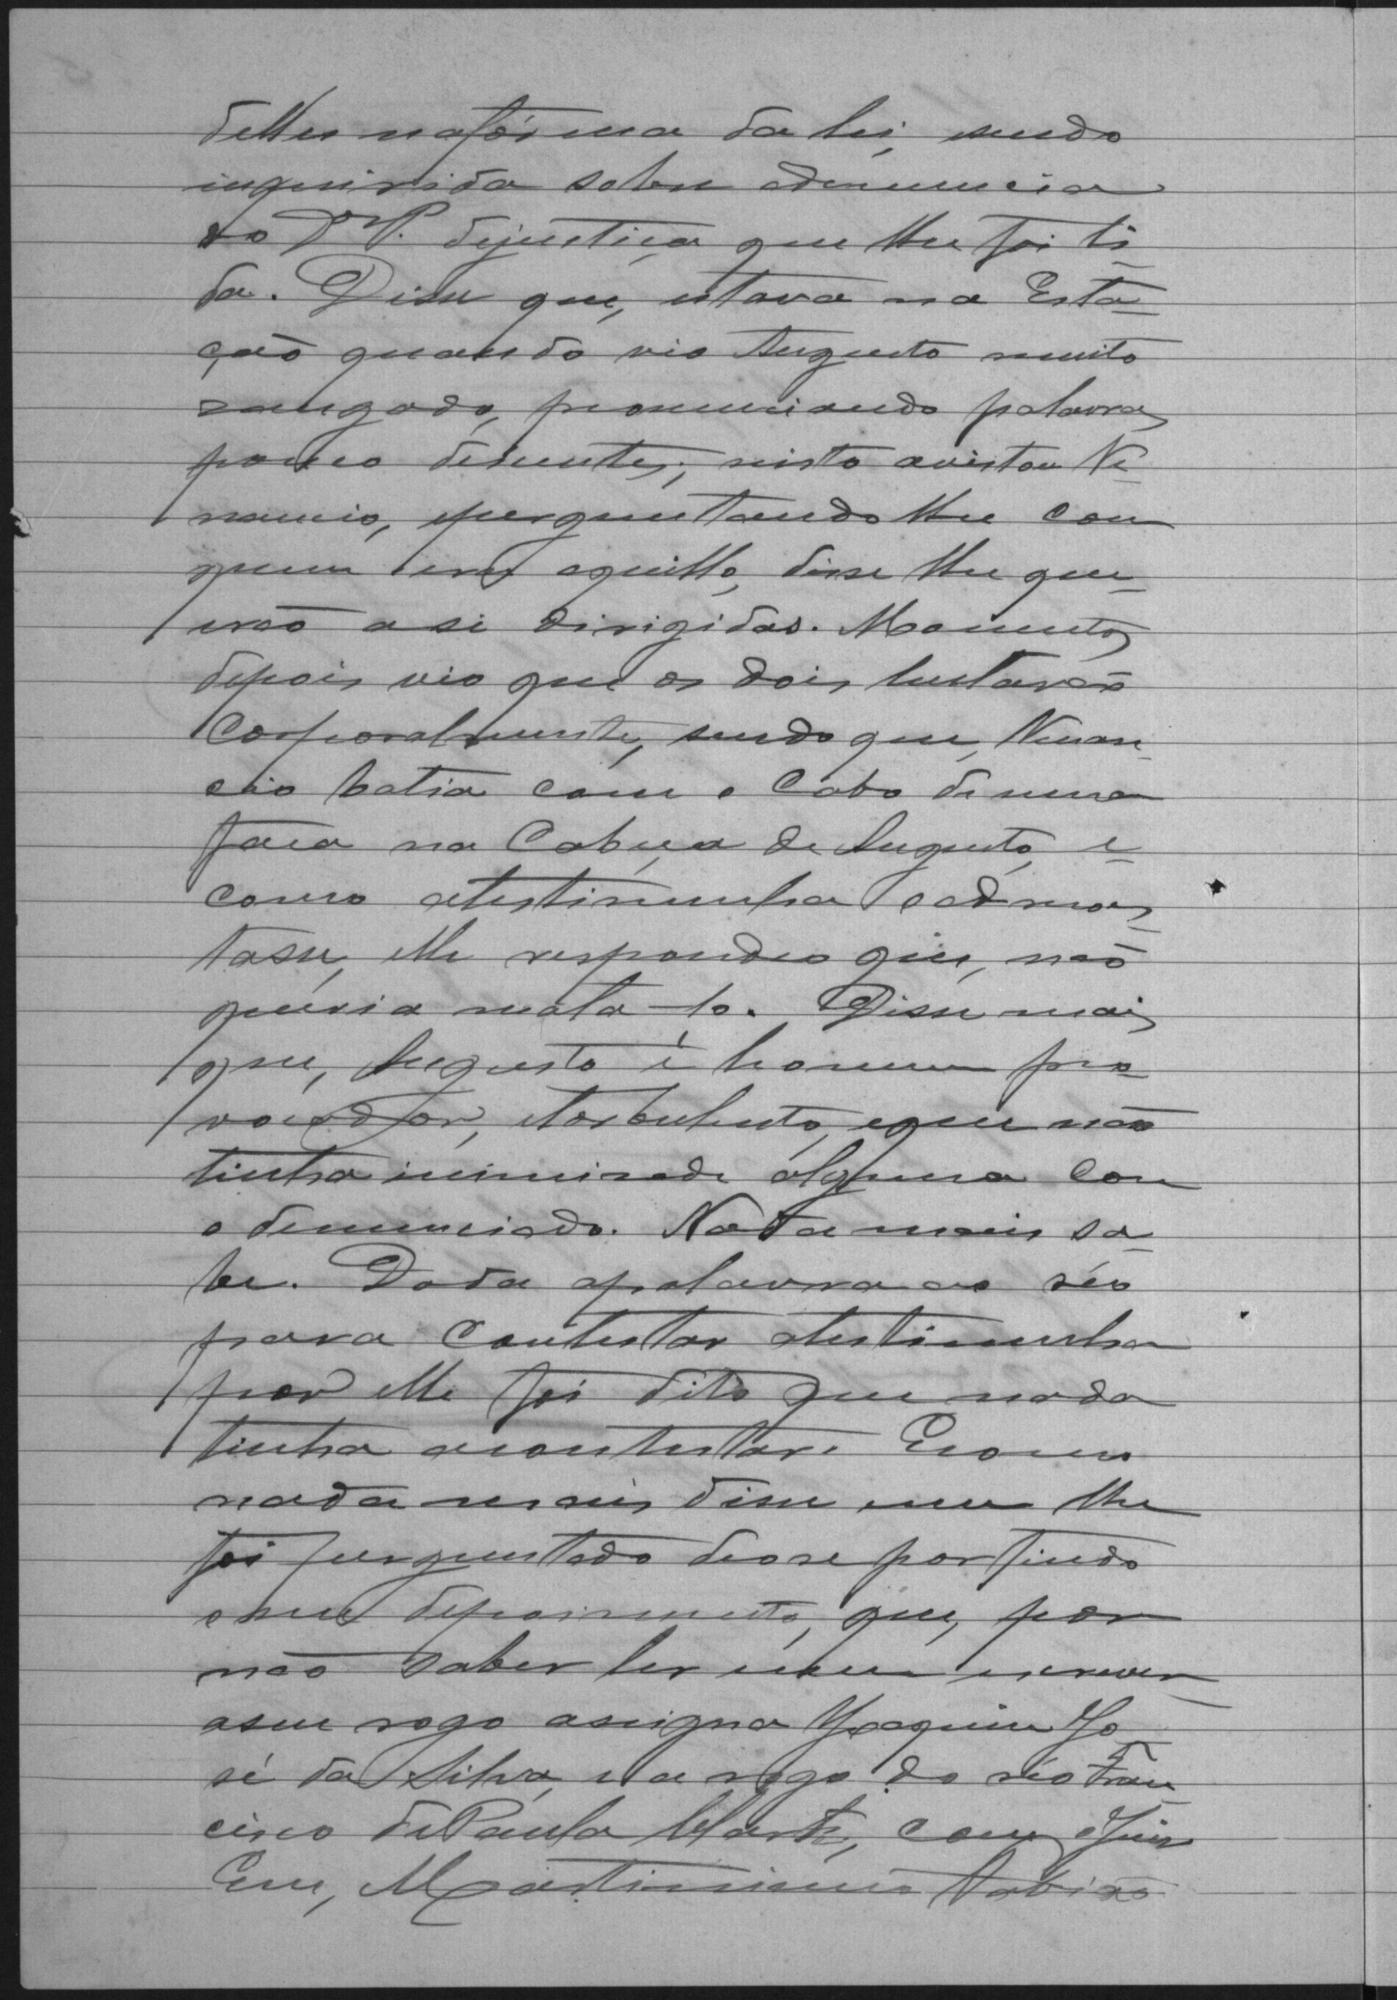 delles na fórma da lei, sendo
inquirida sobre a denuncia
do Dr P. de justiça que lhe foi li-
da. Disse que, estava na Esta-
ção quando vio Augusto muito
zangado, pronunciando palavras
pouco desentes; nisto avistou Ve-
nancio, e perguntando lhe com
quem era aquillo, disse lhe que
erão a si dirigidas. Momentos
depois vio que os dois lutarão
corporalmente, sendo que, Venan-
cio batia com o cabo de uma
faca na cabeça de Augusto, e
como a testimunha o admoes-
tasse, elle respondeo que, não
queria mata-lo. Disse mais
que, Augusto é homem pro-
vocador, e torbulento, e que não
tinha inimisade alguma com
o denunciado. Nada mais sa-
be. Dada a palavra ao réo
para contestar a testimunha
por elle foi dito que nada
tinha a contestar. E como
nada mais disse nem lhe
foi perguntado deo se por findo
o seu depoimento, que, por
não saber ler nem escrever
a seu rogo assigna Joaquim Jo-
sé da Silva, e a rogo do réo Fran-
cisco de Paula, com o Juiz
Eu, Martiniano